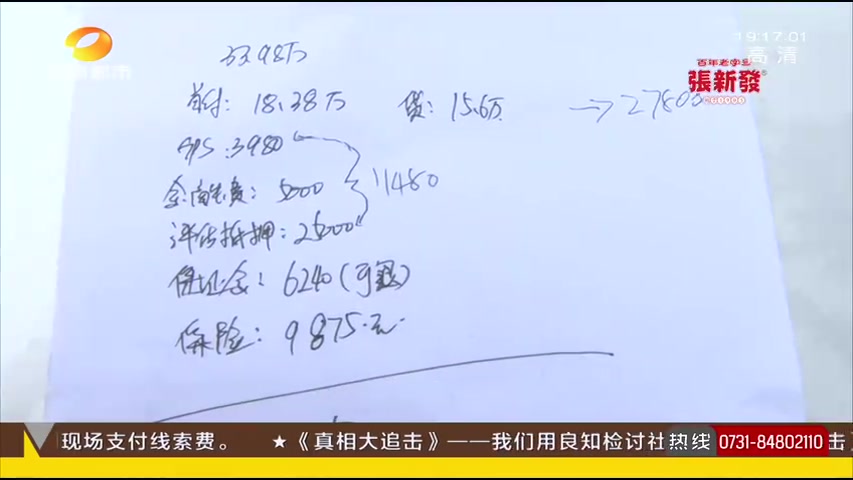 19:17:01
高清
都市
百年老字号
張新發
33.98万
首付: 18.38万 贷: 15.6万 → 27800
GPS: 3980
金融服务费: 5000
11480
评估抵押: 2500
保证金: 6240(可退)
保险: 9875.元
现场支付线索费。 ★《真相大追击》——我们用良知检讨社 热线 0731-84802110 击》